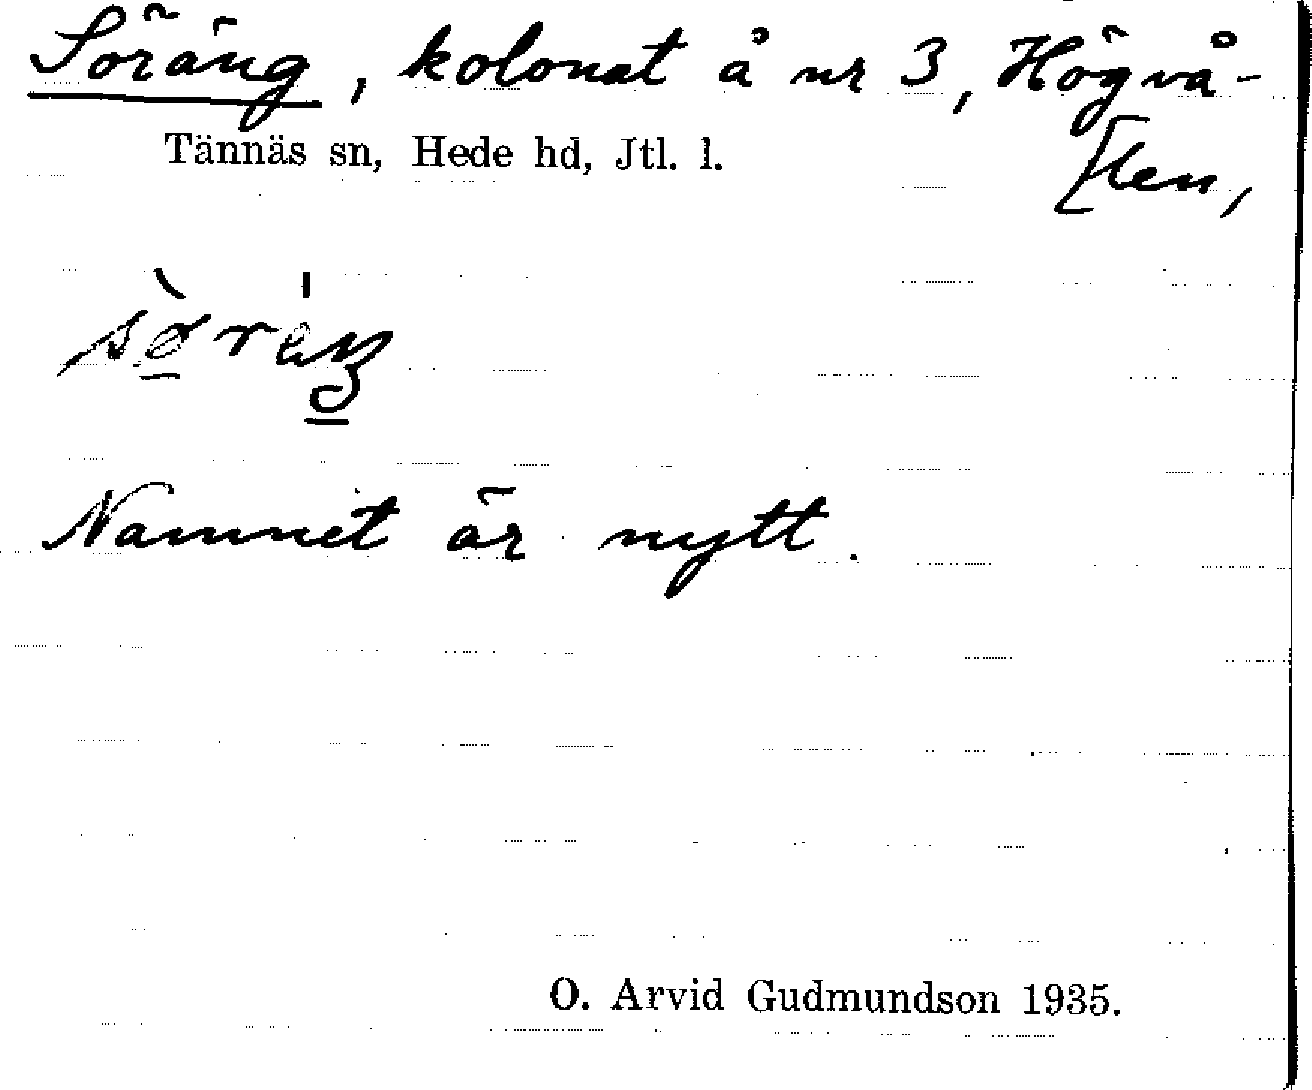 Söräng, kolonat å nr 3, Högvå-
[len,
Tännäs sn, Hede hd, Jtl. l.
Namnet är nytt.
O. Arvid Gudmundson 1935.